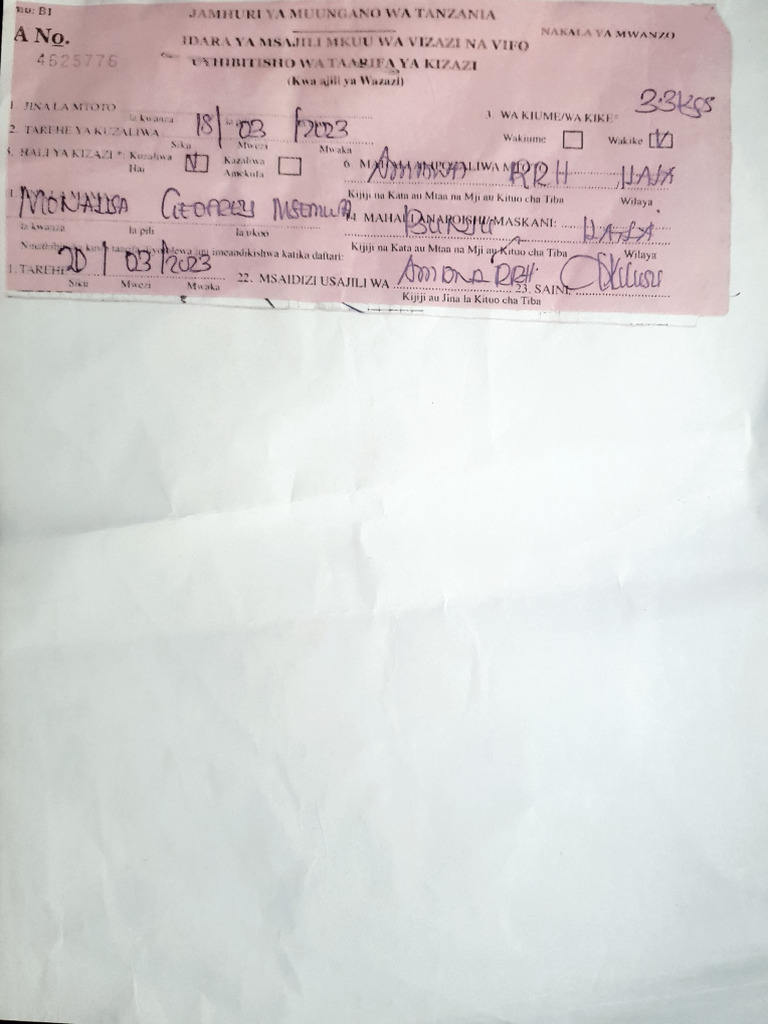 B1
JAMHURI YA MUUNGANO WA TANZANIA
NAKALA YA MWANZO
A No.
4625776
IDARA YA MSAJILI MKUU WA VIZAZI NA VIFO
UTHIBITISHO WA TAARIFA YA KIZAZI
(Kwa ajili ya Wazazi)
3.3kgs
1. JINA LA MTOTO
la kwanza
3. WA KIUME/WA KIKE*
2. TAREHE YA KUZALIWA 18/ 03 /2023
Siku Mwezi Mwaka
Wakiume Wakike
5. HALI YA KIZAZI *: Kuzaliwa Hai Kuzaliwa Amekufa
6. RRH
Kijiji na Kata au Mtaa na Mji au Kituo cha Tiba Wilaya
MONALISA GEOFREY
la kwanza la pili la ukoo
MAHALI ANAPOISHI/MASKANI:
Kijiji na Kata au Mtaa na Mji au Kituo cha Tiba Wilaya
imeandikishwa katika daftari:
TAREHE 20 / 03 /2023
Siku Mwezi Mwaka
22. MSAIDIZI USAJILI WA RRH 23. SAINI
Kijiji au Jina la Kituo cha Tiba